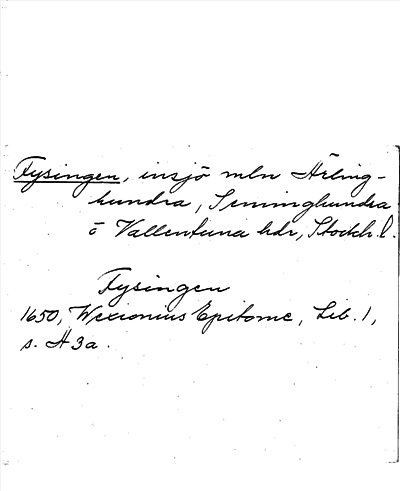 Fysingen, insjö mln Ärling-
hundra, Seminghundra
o Vallentuna hdr, Stockh. l.
Fysingen
1650, Wexionius Epitome, Lib. 1,
s. H 3a.